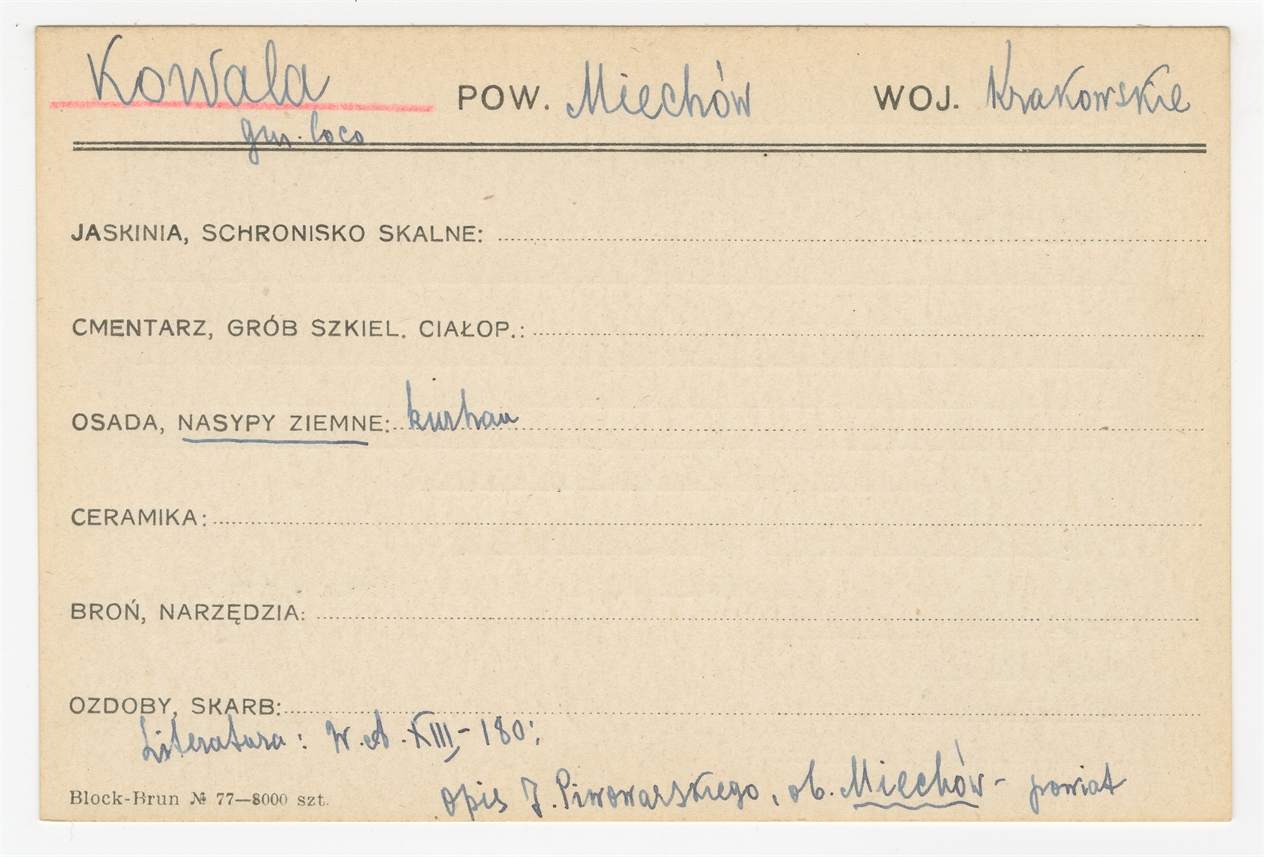 Kowala POW. Miechów WOJ. Krakowskie
gm. loco
JASKINIA, SCHRONISKO SKALNE:
CMENTARZ, GRÓB SZKIEL. CIAŁOP.:
OSADA, NASYPY ZIEMNE: kurhan
CERAMIKA:
BROŃ, NARZĘDZIA:
OZDOBY, SKARB:
Literatura: W.A. XIII,- 180;
opis J. Piwowarskiego, ob. Miechów - powiat
Block-Brun № 77—8000 szt.